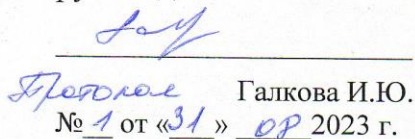 Протокол Галкова И.Ю.
№ 1 от «31» 08 2023 г.